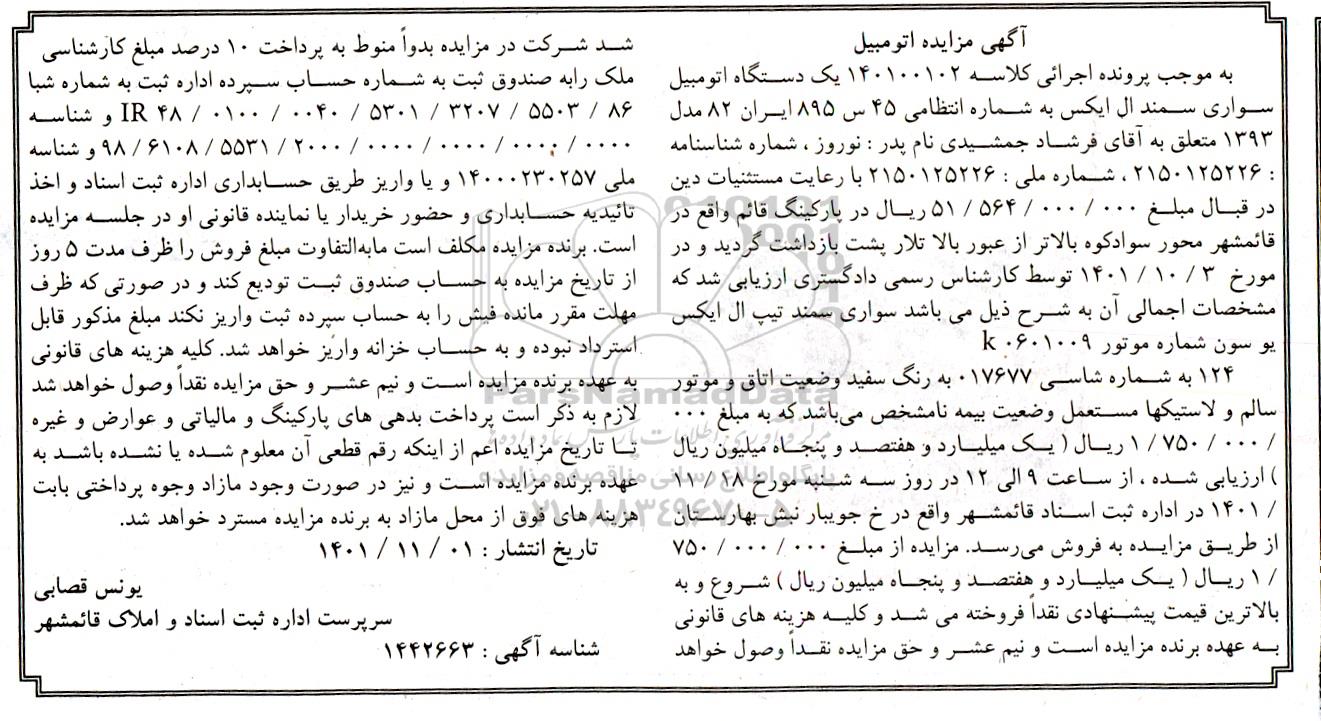 آگهی مزایده اتومبیل
به موجب پرونده اجرائی کلاسه ۱۴۰۱۰۰۱۰۲ یک دستگاه اتومبیل
سواری سمند ال ایکس به شماره انتظامی ۴۵ س ۸۹۵ ایران ۸۲ مدل
۱۳۹۳ متعلق به آقای فرشاد جمشیدی نام پدر : نوروز ، شماره شناسنامه
: ۲۱۵۰۱۲۵۲۲۶ ، شماره ملی : ۲۱۵۰۱۲۵۲۲۶ با رعایت مستثنیات دین
در قبال مبلغ ۰۰۰ / ۰۰۰ / ۵۶۴ / ۵۱ ریال در پارکینگ قائم واقع در
قائمشهر محور سوادکوه بالاتر از عبور بالا تلار پشت بازداشت گردید و در
مورخ ۳ / ۱۰ / ۱۴۰۱ توسط کارشناس رسمی دادگستری ارزیابی شد که
مشخصات اجمالی آن به شرح ذیل می باشد سواری سمند تیپ ال ایکس
یو سون شماره موتور ۰۶۰۱۰۰۹ k
۱۲۴ به شماره شاسی ۰۱۷۶۷۷ به رنگ سفید وضعیت اتاق و موتور
سالم و لاستیکها مستعمل وضعیت بیمه نامشخص می‌باشد که به مبلغ ۰۰۰
/ ۰۰۰ / ۷۵۰ / ۱ ریال ( یک میلیارد و هفتصد و پنجاه میلیون ریال
) ارزیابی شده ، از ساعت ۹ الی ۱۲ در روز سه شنبه مورخ ۱۸ / ۱۱
/ ۱۴۰۱ در اداره ثبت اسناد قائمشهر واقع در خ جویبار نبش بهارستان
از طریق مزایده به فروش می‌رسد. مزایده از مبلغ ۰۰۰ / ۰۰۰ / ۷۵۰
/ ۱ ریال ( یک میلیارد و هفتصد و پنجاه میلیون ریال ) شروع و به
بالاترین قیمت پیشنهادی نقداً فروخته می شد و کلیه هزینه های قانونی
به عهده برنده مزایده است و نیم عشر و حق مزایده نقداً وصول خواهد
شد شرکت در مزایده بدواً منوط به پرداخت ۱۰ درصد مبلغ کارشناسی
ملک رابه صندوق ثبت به شماره حساب سپرده اداره ثبت به شماره شبا
۸۶ / ۵۵۰۳ / ۳۲۰۷ / ۵۳۰۱ / ۰۰۴۰ / ۰۱۰۰ / ۴۸ IR و شناسه
۰۰۰۰ / ۰۰۰۰ / ۰۰۰۰ / ۰۰۰۰ / ۲۰۰۰ / ۵۵۳۱ / ۶۱۰۸ / ۹۸ و شناسه
ملی ۱۴۰۰۰۲۳۰۲۵۷ و یا واریز طریق حسابداری اداره ثبت اسناد و اخذ
تائیدیه حسابداری و حضور خریدار یا نماینده قانونی او در جلسه مزایده
است. برنده مزایده مکلف است مابه‌التفاوت مبلغ فروش را ظرف مدت ۵ روز
از تاریخ مزایده به حساب صندوق ثبت تودیع کند و در صورتی که ظرف
مهلت مقرر مانده فیش را به حساب سپرده ثبت واریز نکند مبلغ مذکور قابل
استرداد نبوده و به حساب خزانه واریز خواهد شد. کلیه هزینه های قانونی
به عهده برنده مزایده است و نیم عشر و حق مزایده نقداً وصول خواهد شد
لازم به ذکر است پرداخت بدهی های پارکینگ و مالیاتی و عوارض و غیره
تا تاریخ مزایده اعم از اینکه رقم قطعی آن معلوم شده یا نشده باشد به
عهده برنده مزایده است و نیز در صورت وجود مازاد وجوه پرداختی بابت
هزینه های فوق از محل مازاد به برنده مزایده مسترد خواهد شد.
تاریخ انتشار : ۰۱ / ۱۱ / ۱۴۰۱
یونس قصابی
سرپرست اداره ثبت اسناد و املاک قائمشهر
شناسه آگهی : ۱۴۴۲۶۶۳
ParsNamadData
پایگاه اطلاع رسانی مناقصه و مزایده